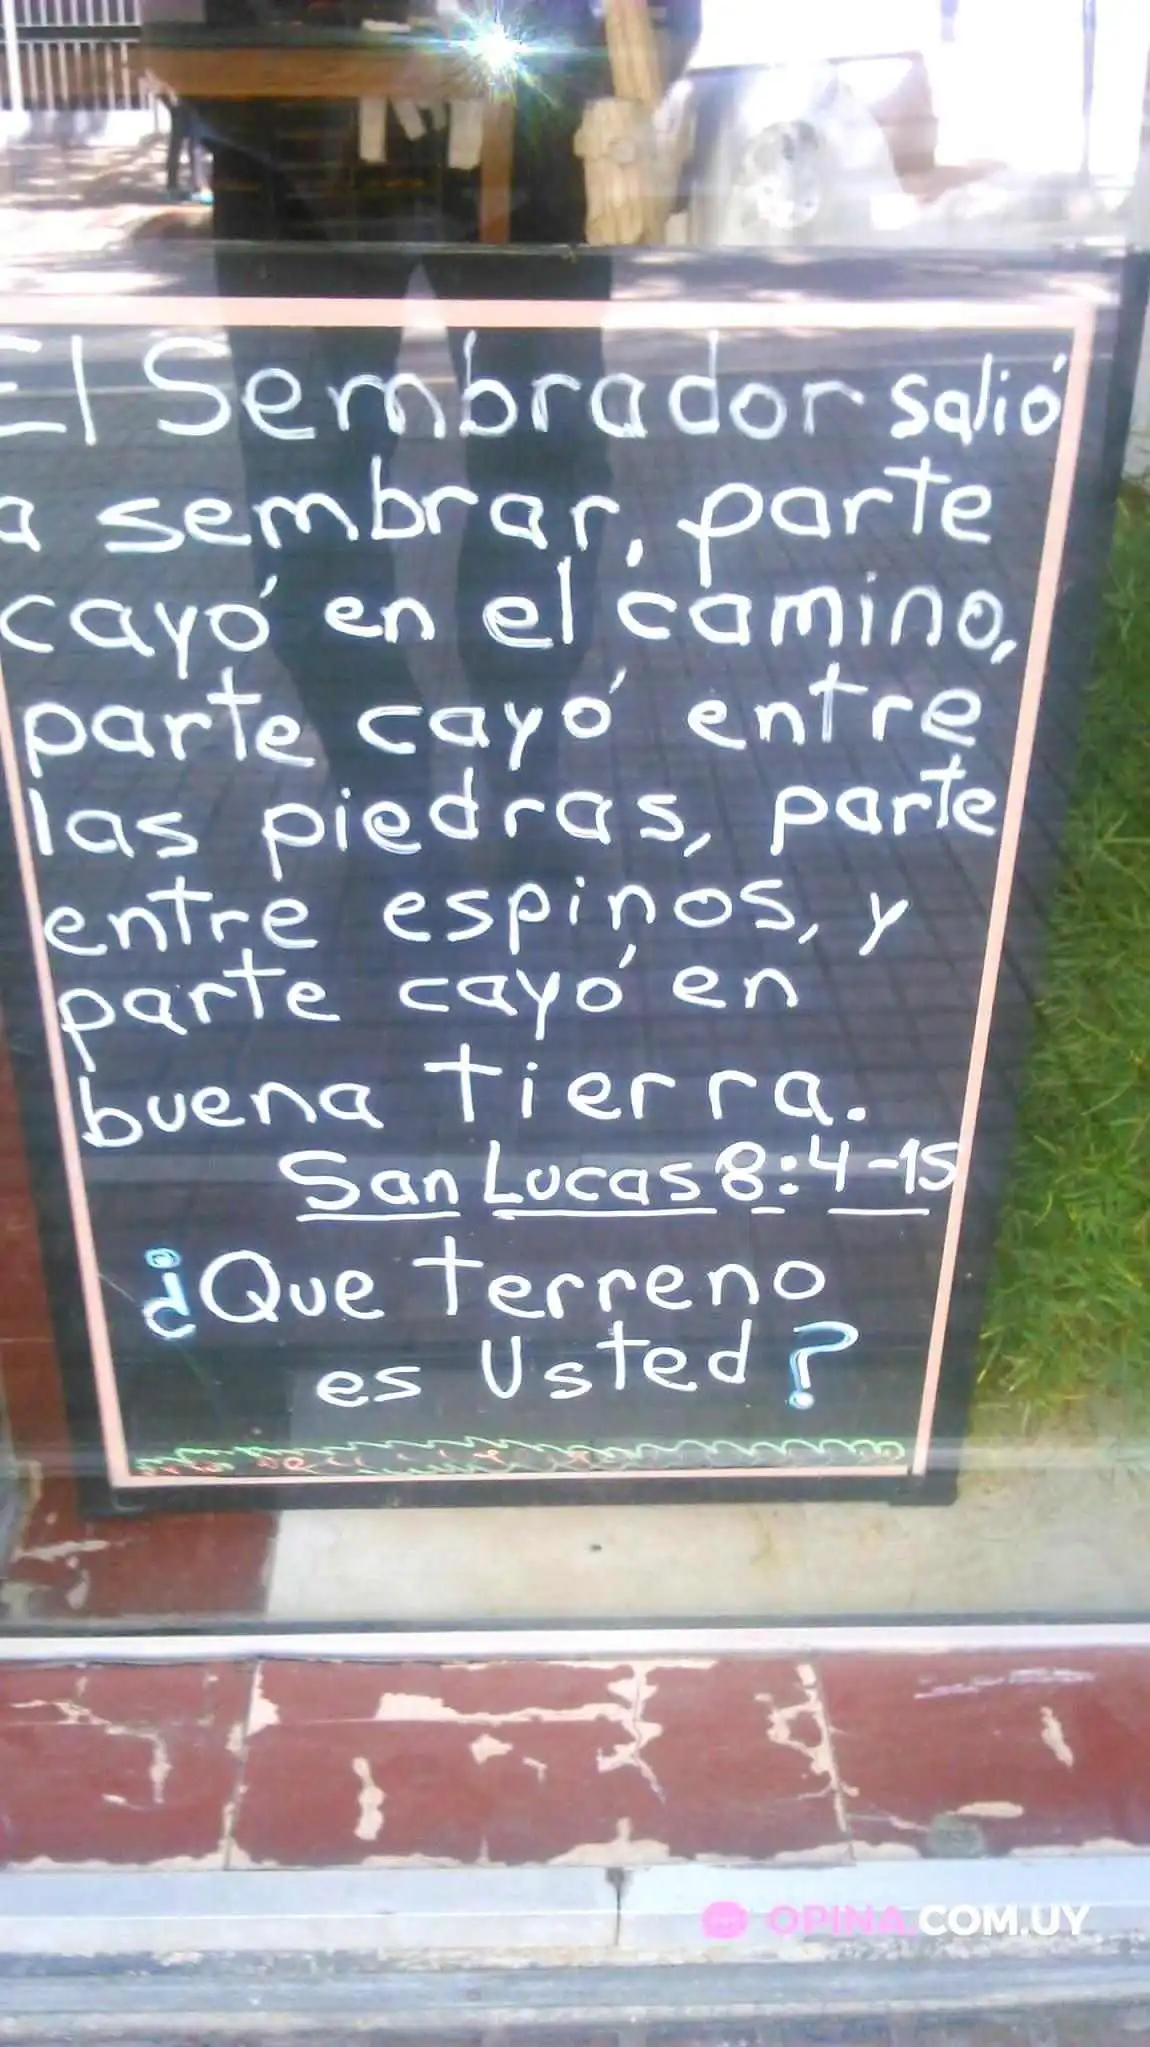 El Sembrador salió
a sembrar, parte
cayó en el camino,
parte cayó entre
las piedras, parte
entre espinos, y
parte cayó en
buena tierra.
San Lucas 8:4-15
¿Que terreno
es Usted?
OPINA.COM.UY